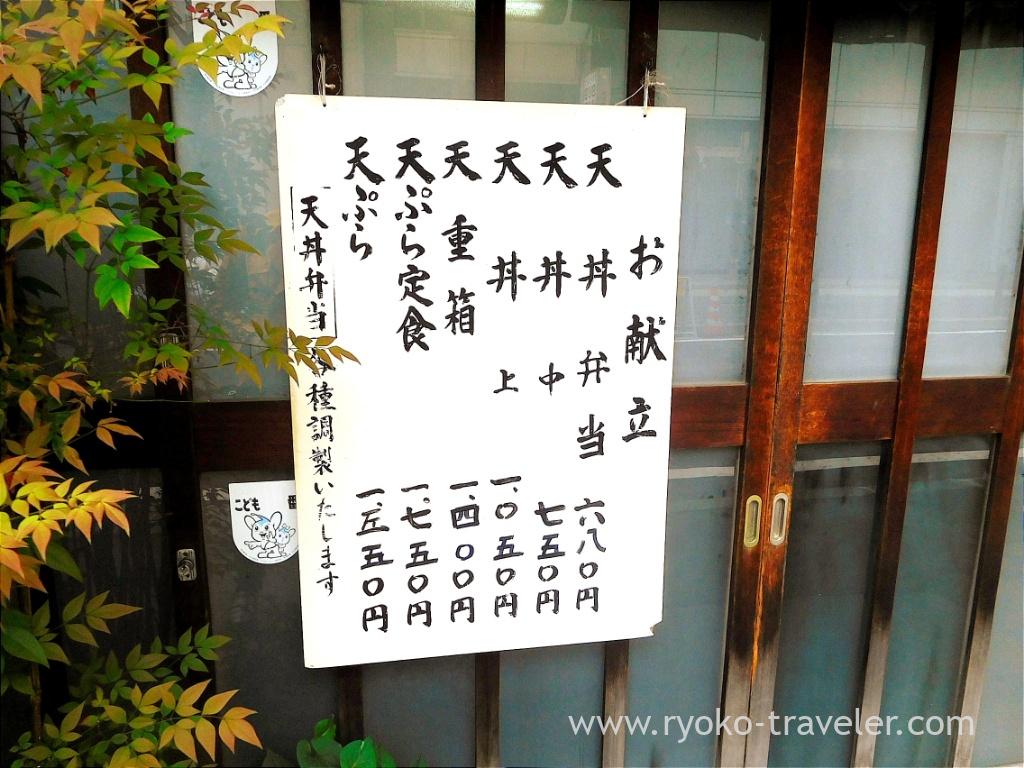 お献立
天丼弁当 六八〇円
天丼 中 七五〇円
天丼 上 一、〇五〇円
天重箱 一、四〇〇円
天ぷら定食 一、七五〇円
天ぷら 一、五五〇円
「天丼弁当」各種調製いたします
こども
www.ryoko-traveler.com